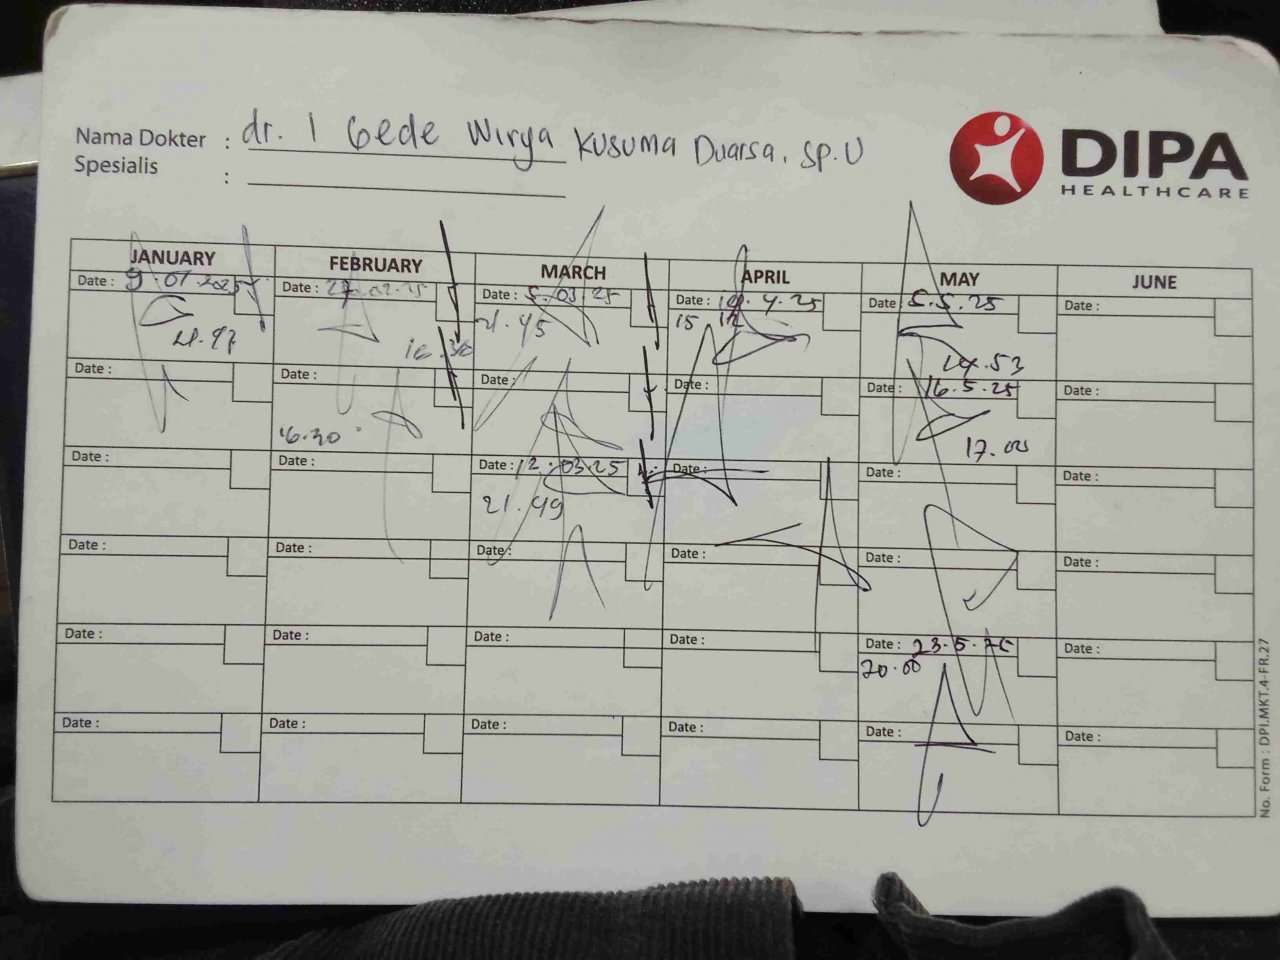 Nama Dokter : dr. I Gede Wirya Kusuma Duarsa, Sp.U
Spesialis :
DIPA
HEALTHCARE
JANUARY FEBRUARY MARCH APRIL MAY JUNE
Date : 9.01.2025 Date : 27.02.25 Date : 5.03.25 Date : 4.25 Date : 5.5.25 Date :
16.30 21.45 15 14.53
Date : Date : Date : Date : Date : 16.5.25 Date :
16.30 17.00
Date : Date : Date : 12.03.25 Date : Date : Date :
21.49
Date : Date : Date : Date : Date : Date :
Date : Date : Date : Date : Date : 23.5.25 Date :
20.00
Date : Date : Date : Date : Date : Date :
No. Form : DPI.MKT.4-FR.27